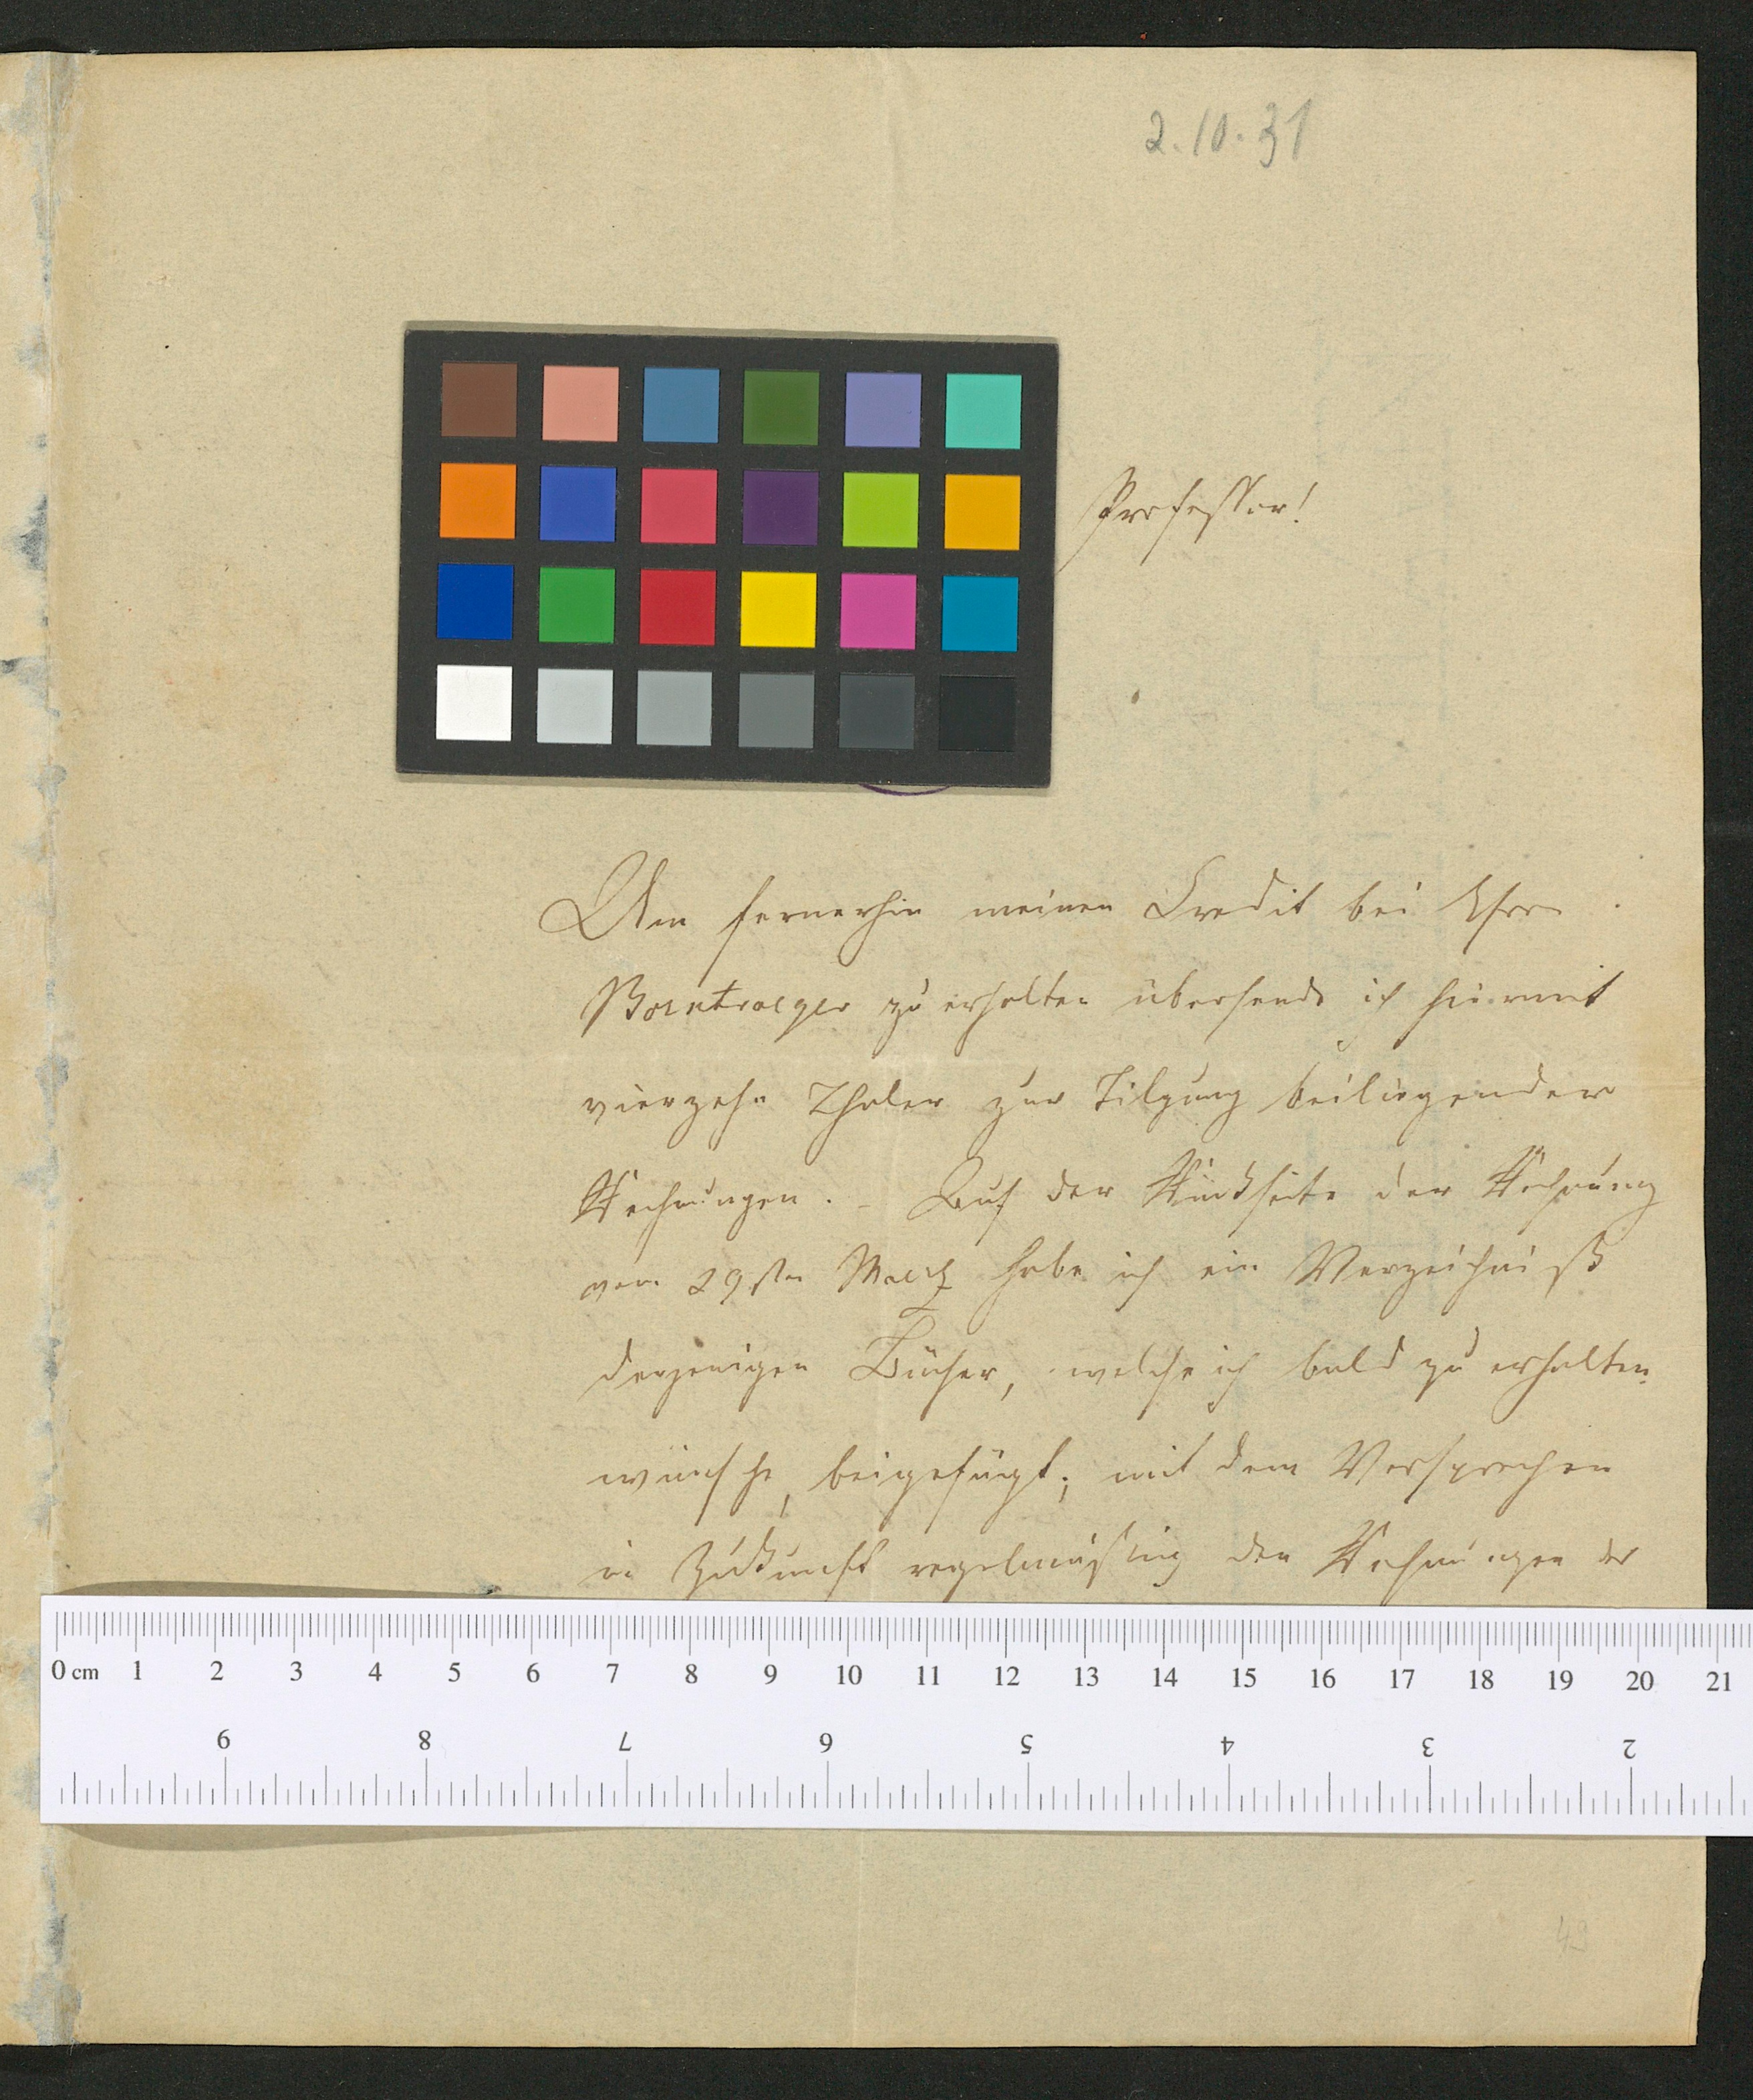 2.10.31
Professor!
Um fernerhin meinen Credit bei Herrn
Borntraeger zu erhalten übersende ich hiermit
vierzehn Thaler zur Tilgung beiliegender
Rechnungen. – Auf der Rückseite der Rechnung
vom 29sten Maerz habe ich ein Verzeichniß
derjenigen Bücher, welche ich bald zu erhalten
wünsche, beigefügt; mit dem Versprechen
in Zukunft regelmäßig den Rechnungen der
0 cm 1 2 3 4 5 6 7 8 9 10 11 12 13 14 15 16 17 18 19 20 21
9 8 7 6 5 4 3 2
49